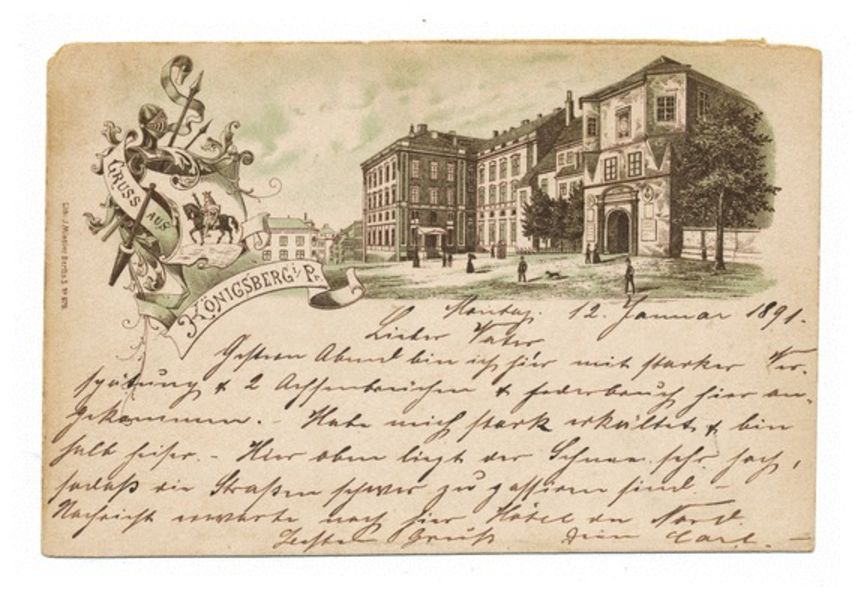 GRUSS AUS
KÖNIGSBERG i/Pr.
Montag. 12. Januar 1891.
Lieber Vater
Gestern Abend bin ich hier mit starker Ver-
spätung & 2 Achsenbrüchen & Federbruch hier an-
gekommen. – Habe mich stark erkältet & bin
halb heiser. – Hier oben liegt der Schnee sehr hoch,
sodaß die Straßen schwer zu passiren sind –
Nachricht erwarte nach hier Hôtel du Nord.
Gruß Dein Carl. –